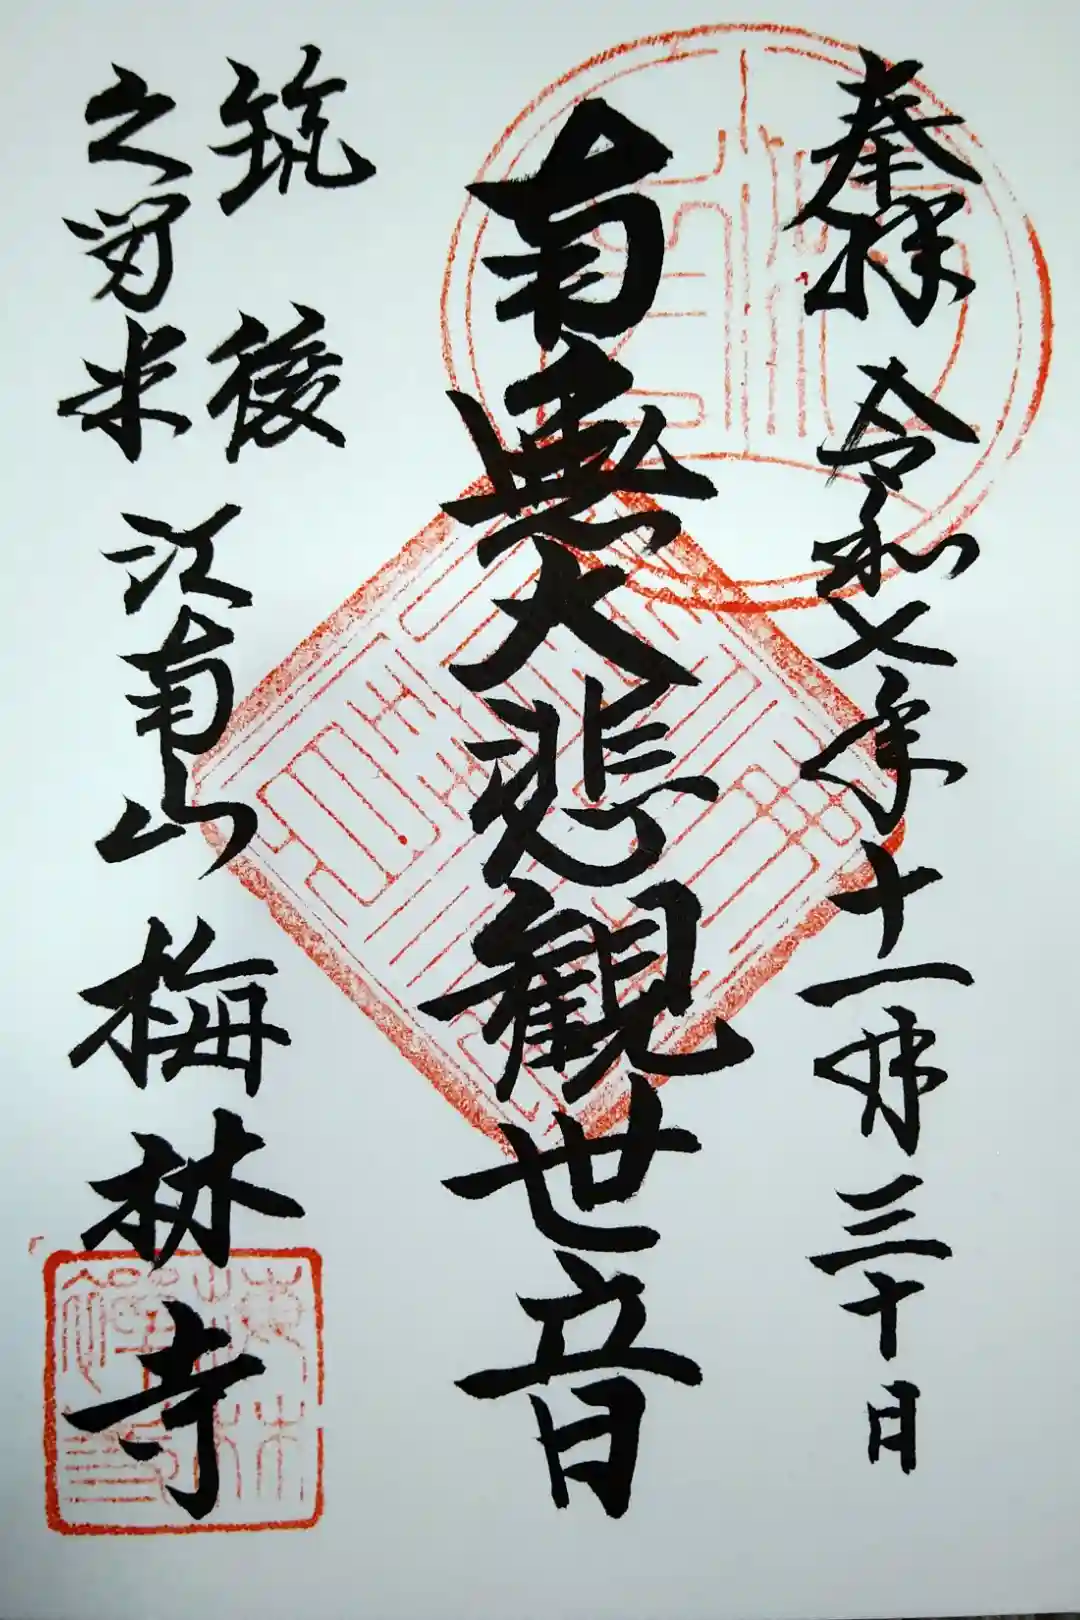 奉拝 令和七年十一月三十日
南無大悲観世音
筑後
久留米 江南山 梅林寺